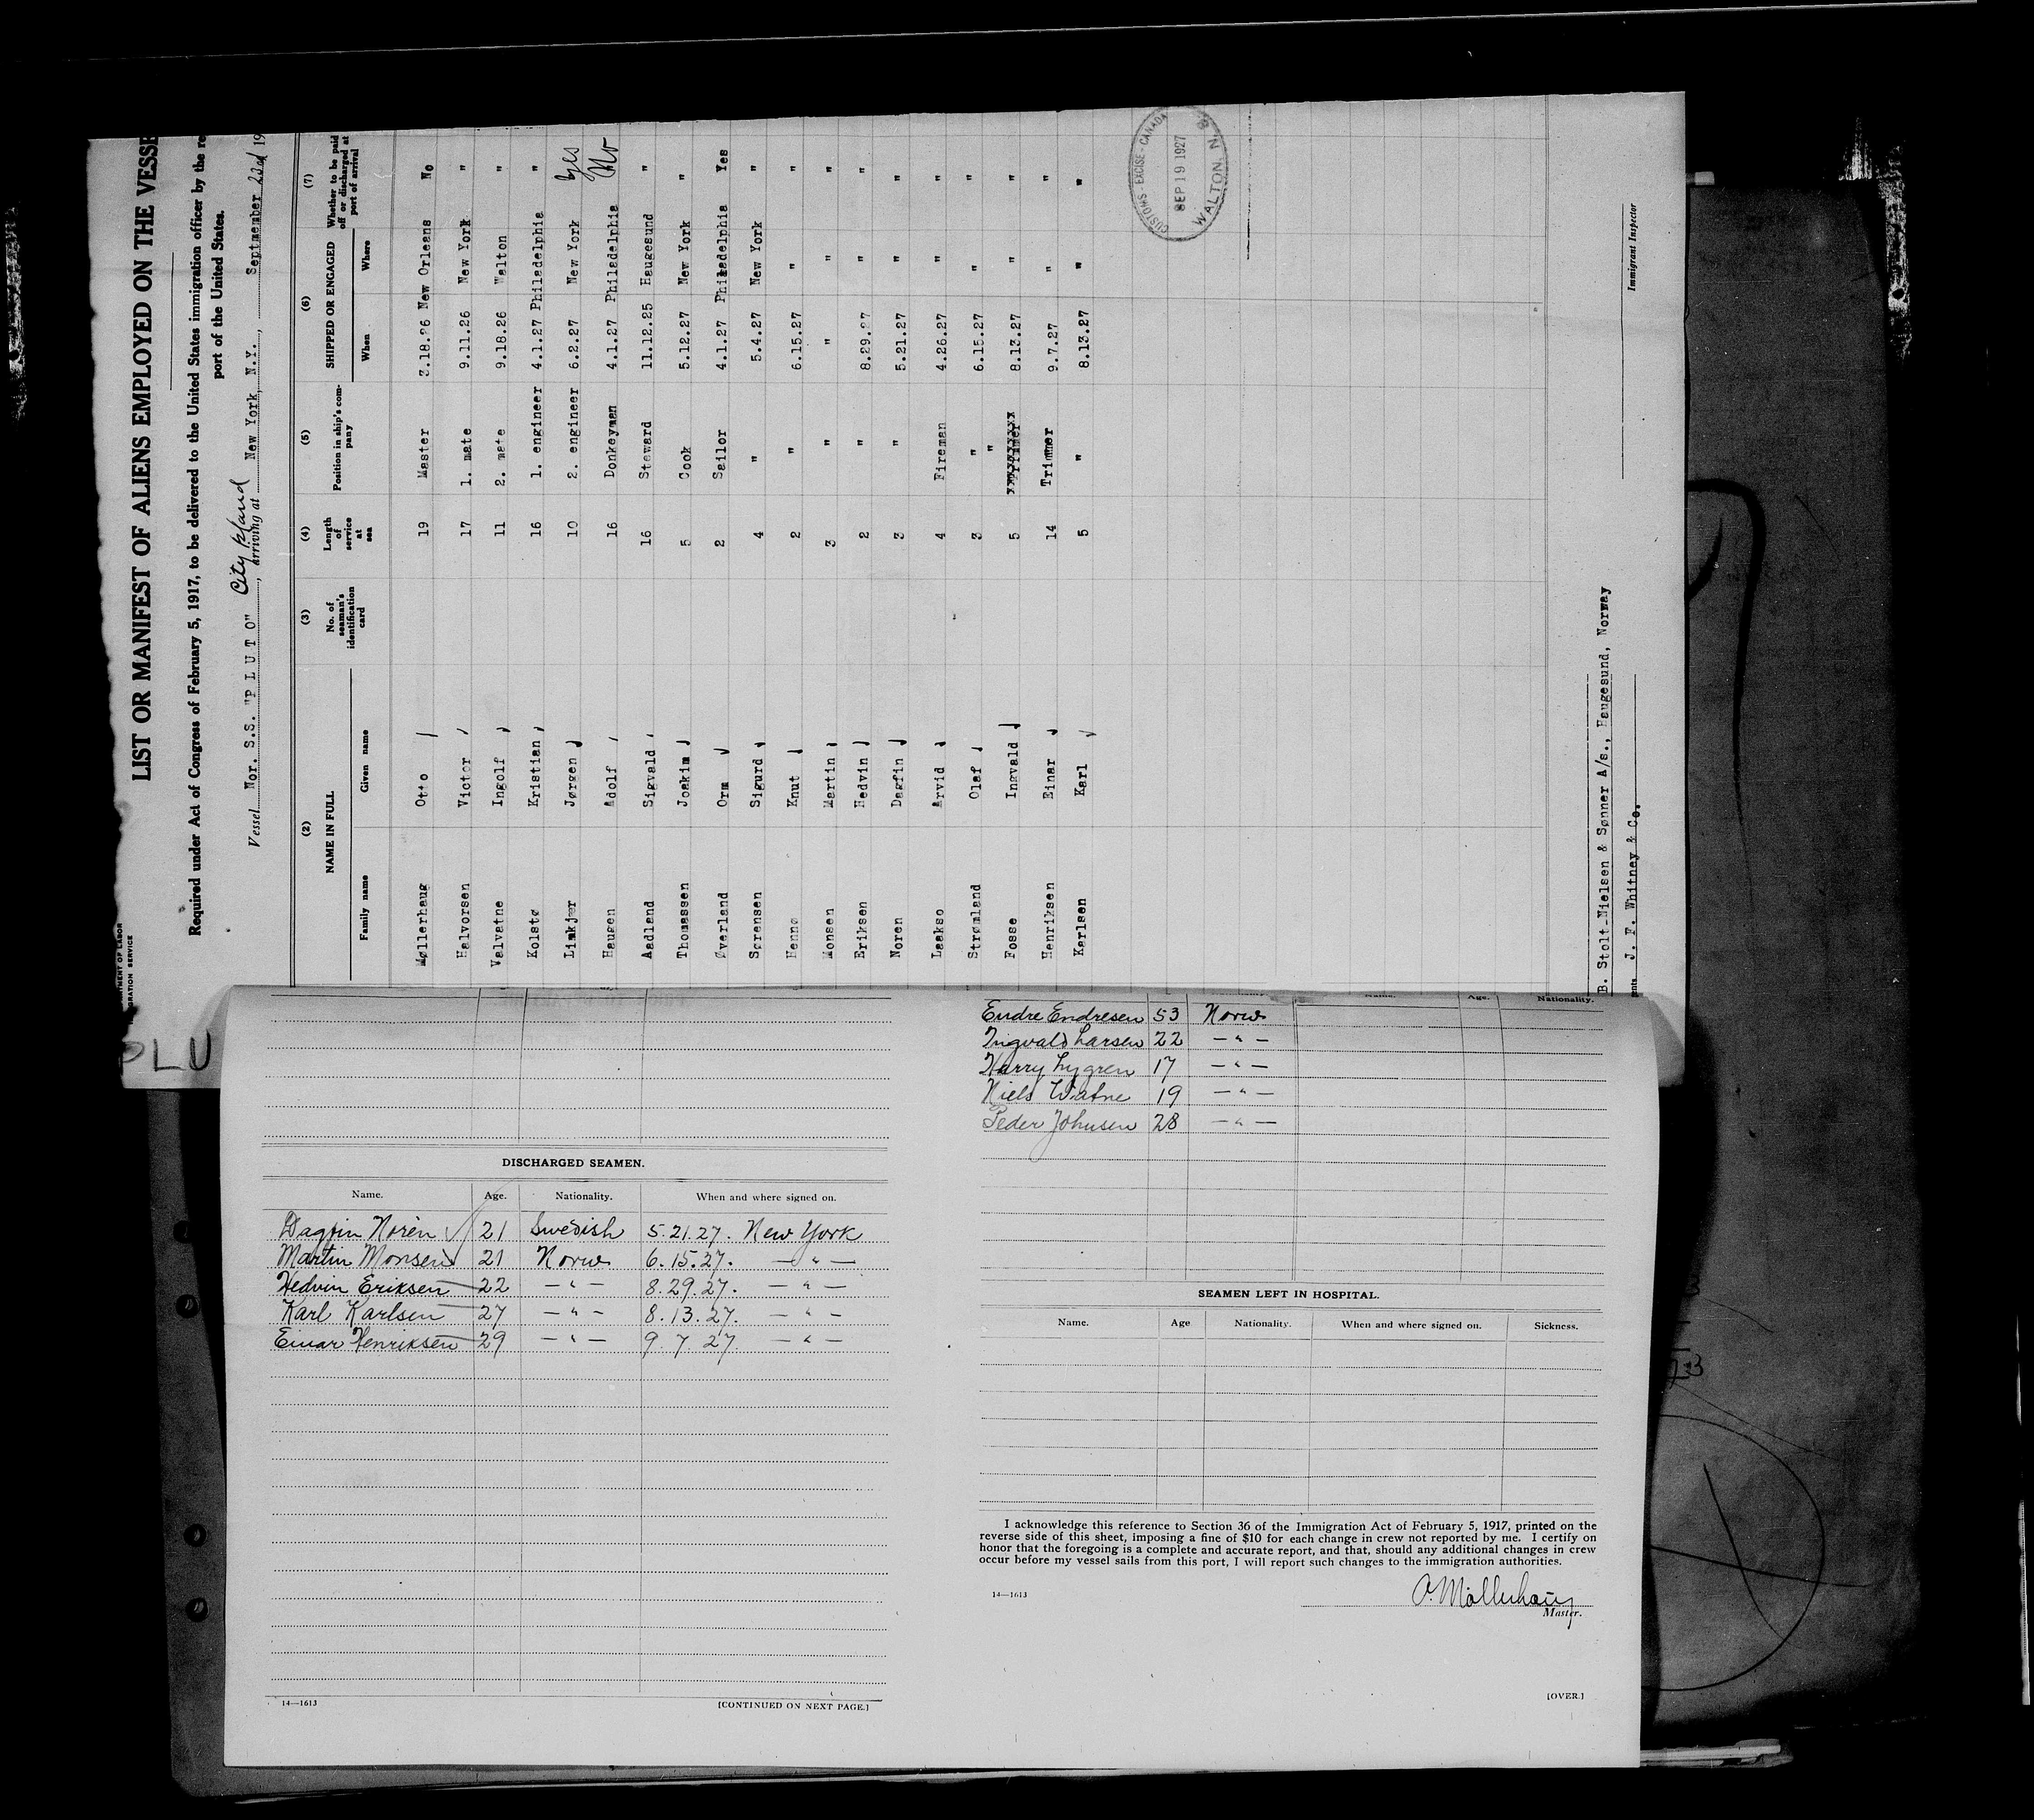 LIST OR MANIFEST OF ALIENS EMPLOYED ON THE VESSE
Required under Act of Congress of February 5, 1917, to be delivered to the United States immigration officer by the re
port of the United States.
Vessel Nor. S.S. "P L U T O" City Island, arriving at New York, N.Y., Septmember 23rd 19
(2) (3) (4) (5) (6) (7)
NAME IN FULL No. of seaman's identification card Length of service at sea Position in ship's company SHIPPED OR ENGAGED Whether to be paid off or discharged at port of arrival
Family name Given name When Where
Møllerhaug Otto 19 Master 3.18.26 New Orleans No
Halvorsen Victor 17 1. mate 9.11.26 New York "
Valvatne Ingolf 11 2. mate 9.18.26 Walton "
Kolstø Kristian 16 1. engineer 4.1.27 Philadelphia "
Linkjær Jørgen 10 2. engineer 6.2.27 New York Yes
Haugen Adolf 16 Donkeyman 4.1.27 Philadelphia No
Aadland Sigvald 16 Steward 11.12.25 Haugesund "
Thomassen Joakim 5 Cook 5.12.27 New York "
Øverland Orm 2 Sailor 4.1.27 Philadelphia Yes
Sørensen Sigurd 4 " 5.4.27 New York "
Hennø Knut 2 " 6.15.27 " "
Monsen Martin 3 " " " "
Eriksen Hedvin 2 " 8.29.27 " "
Noren Dagfin 3 " 5.21.27 " "
Laakso Arvid 4 Fireman 4.26.27 " "
Strømland Olaf 3 " 6.15.27 " "
Fosse Ingvald 5 " 8.13.27 " "
Henriksen Einar 14 Trimmer 9.7.27 " "
Karlsen Karl 5 " 8.13.27 " "
CUSTOMS-EXCISE-CANADA
SEP 19 1927
WALTON, N.S
B. Stolt-Nielsen & Sønner A/s., Haugesund, Norway
J. F. Whitney & Co.
Immigrant Inspector
PLU
DISCHARGED SEAMEN.
Name. Age. Nationality. When and where signed on.
Dagfin Norèn 21 Swedish 5.21.27. New York
Martin Monsen 21 Norw 6.15.27. — " —
Hedvin Eriksen 22 — " — 8.29.27. — " —
Karl Karlsen 27 — " — 8.13.27. — " —
Einar Henriksen 29 — " — 9.7.27. — " —
14—1613 [CONTINUED ON NEXT PAGE.]
Name. Age. Nationality.
Endre Endresen 53 Norw
Ingvald Larsen 22 — " —
Harry Lygren 17 — " —
Niels Watne 19 — " —
Peder Johnsen 28 — " —
SEAMEN LEFT IN HOSPITAL.
Name. Age Nationality. When and where signed on. Sickness.
I acknowledge this reference to Section 36 of the Immigration Act of February 5, 1917, printed on the
reverse side of this sheet, imposing a fine of $10 for each change in crew not reported by me. I certify on
honor that the foregoing is a complete and accurate report, and that, should any additional changes in crew
occur before my vessel sails from this port, I will report such changes to the immigration authorities.
14—1613
O. Møllerhaug
Master.
[OVER.]